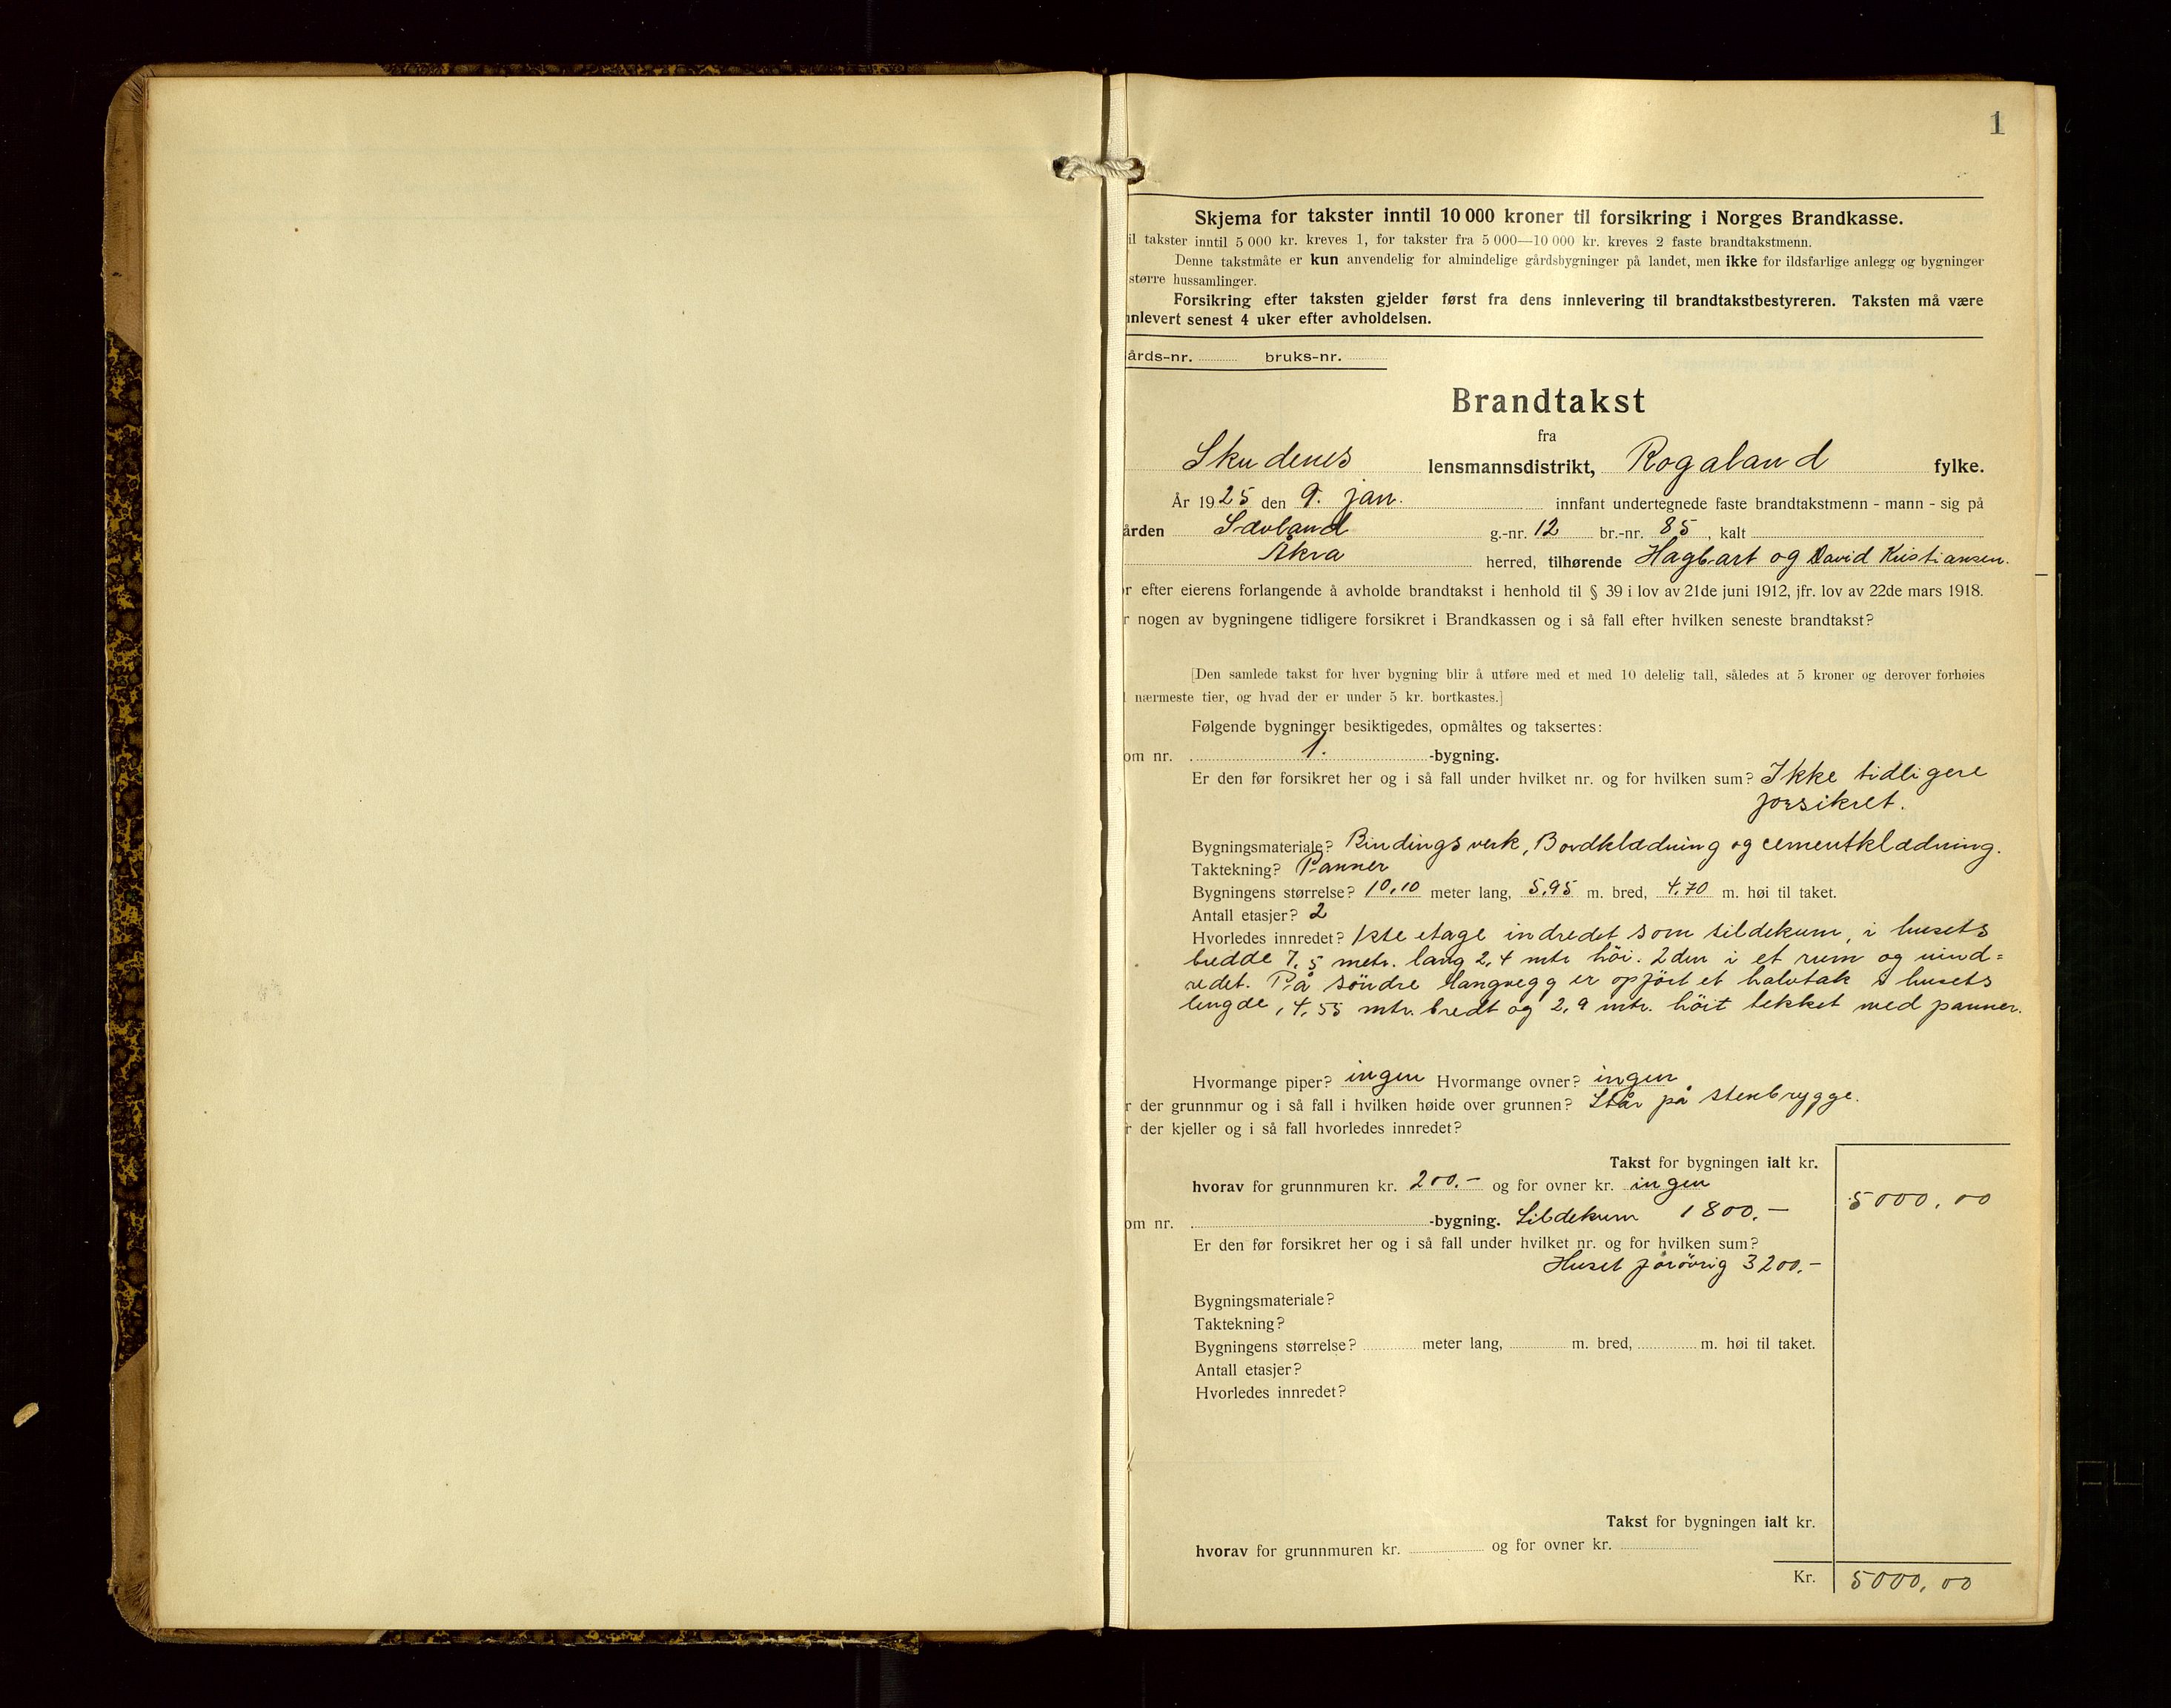 1
Skjema for takster inntil 10 000 kroner til forsikring i Norges Brandkasse.
il takster inntil 5 000 kr. kreves 1, for takster fra 5 000—10 000 kr. kreves 2 faste brandtakstmenn.
Denne takstmåte er kun anvendelig for almindelige gårdsbygninger på landet, men ikke for ildsfarlige anlegg og bygninger
større hussamlinger.
Forsikring efter taksten gjelder først fra dens innlevering til brandtakstbestyreren. Taksten må være
nnlevert senest 4 uker efter avholdelsen.
årds-nr. bruks-nr.
Brandtakst
fra
Skudenes lensmannsdistrikt, Rogaland fylke.
År 1925 den 9. jan. innfant undertegnede faste brandtakstmenn - mann - sig på
ården Sævland g.-nr. 12 br.-nr. 85, kalt
Åkra herred, tilhørende Hagbart og David Kristiansen.
r efter eierens forlangende å avholde brandtakst i henhold til § 39 i lov av 21de juni 1912, jfr. lov av 22de mars 1918.
r nogen av bygningene tidligere forsikret i Brandkassen og i så fall efter hvilken seneste brandtakst?
[Den samlede takst for hver bygning blir å utføre med et med 10 delelig tall, således at 5 kroner og derover forhøies
l nærmeste tier, og hvad der er under 5 kr. bortkastes.]
Følgende bygninger besiktigedes, opmåltes og taksertes:
om nr. 1. -bygning.
Er den før forsikret her og i så fall under hvilket nr. og for hvilken sum? Ikke tidligere
forsikret.
Bygningsmateriale? Bindingsverk, Bordklædning og cementklædning.
Taktekning? Panner
Bygningens størrelse? 10,10 meter lang, 5,95 m. bred, 4,70 m. høi til taket.
Antall etasjer? 2
Hvorledes innredet? 1ste etage indredet som sildekum, i husets
bredde 7,5 metr. lang 2,4 mtr höi. 2den i et rum og uind=
redet. På söndre langvegg er opført et halvtak i husets
lengde, 4,55 mtr. bredt og 2,9 mtr. höit tekket med panner.
Hvormange piper? ingen Hvormange ovner? ingen
r der grunnmur og i så fall i hvilken høide over grunnen? Står på stenbrygge.
r der kjeller og i så fall hvorledes innredet?
Takst for bygningen ialt kr.
hvorav for grunnmuren kr. 200.- og for ovner kr. ingen
5000,00
om nr. -bygning. Sildekum 1800.-
Er den før forsikret her og i så fall under hvilket nr. og for hvilken sum?
Huset forövrig 3200.-
Bygningsmateriale?
Taktekning?
Bygningens størrelse? meter lang, m. bred, m. høi til taket.
Antall etasjer?
Hvorledes innredet?
Takst for bygningen ialt kr.
hvorav for grunnmuren kr. og for ovner kr.
Kr. 5000,00